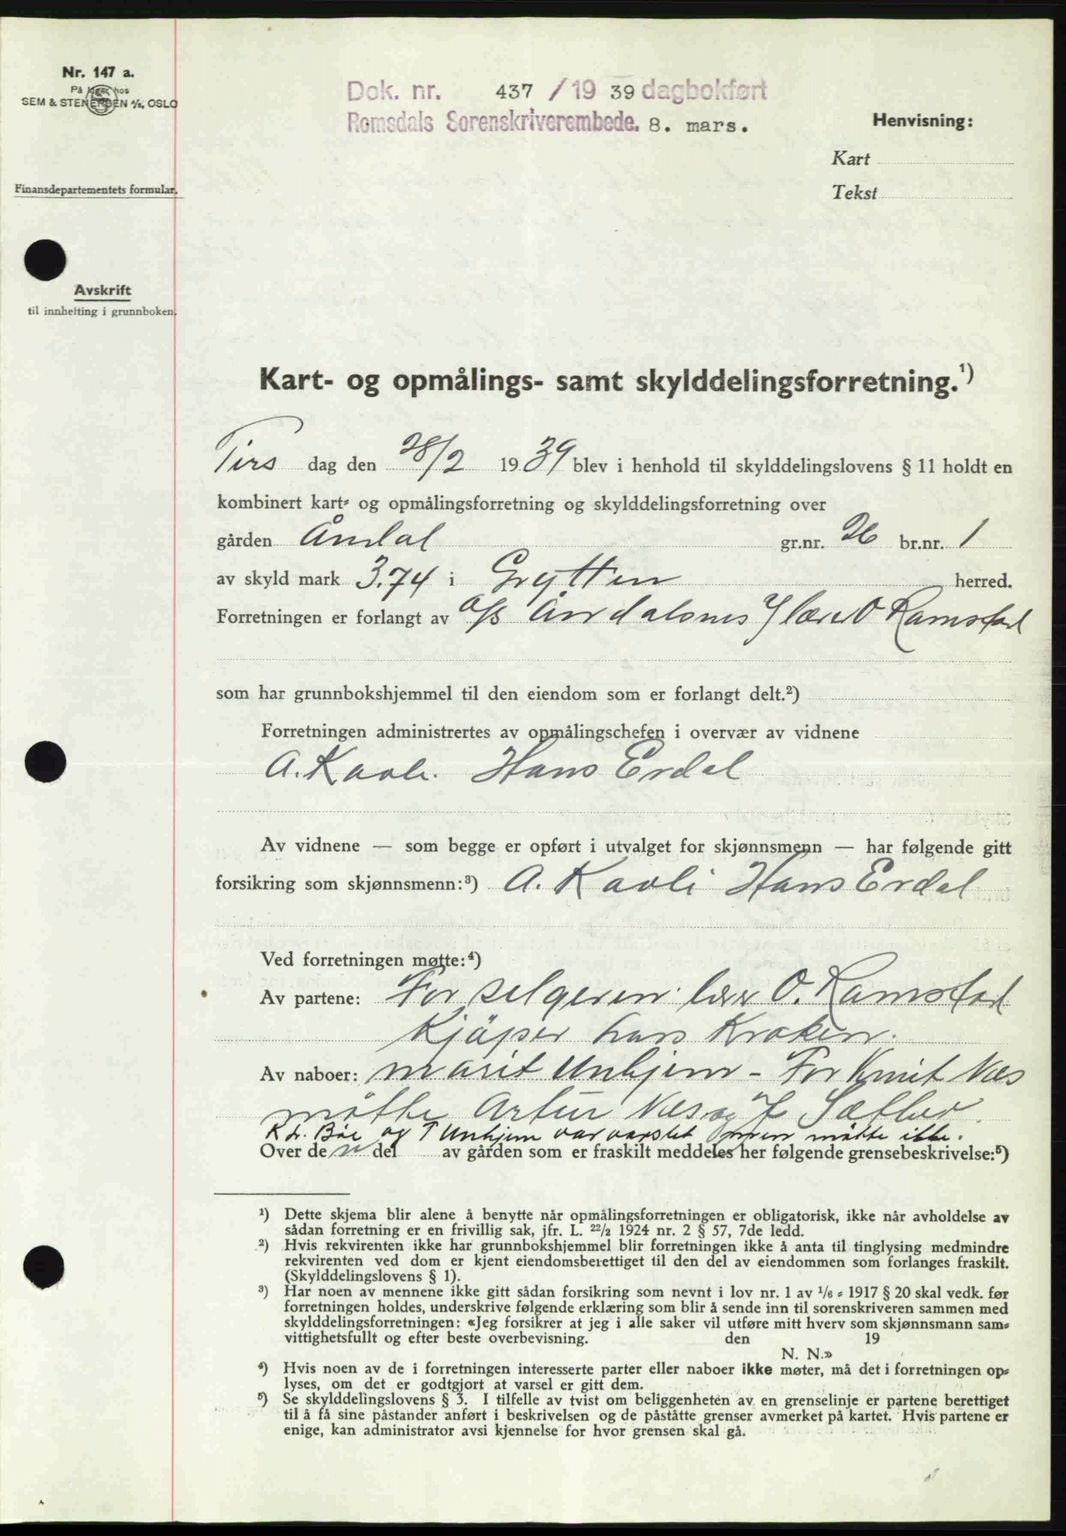 Nr. 147 a.
På lager hos
SEM & STENERSEN A/S, OSLO
Finansdepartementets formular.
Avskrift
til innhefting i grunnboken.
Dok. nr. 437 /19 39 dagbokført
Romsdals Sorenskriverembede. 8. mars.
Henvisning:
Kart
Tekst
Kart- og opmålings- samt skylddelingsforretning.¹)
Tirs dag den 28/2 1939 blev i henhold til skylddelingslovens § 11 holdt en
kombinert kart- og opmålingsforretning og skylddelingsforretning over
gården Åndal gr.nr. 26 br.nr. 1
av skyld mark 3.74 i Grytten herred.
Forretningen er forlangt av A/S Åndalsnes v/ lærer O Ramstad
som har grunnbokshjemmel til den eiendom som er forlangt delt.²)
Forretningen administrertes av opmålingschefen i overvær av vidnene
A. Kavli. Hans Erdal
Av vidnene — som begge er opført i utvalget for skjønnsmenn — har følgende gitt
forsikring som skjønnsmenn:³) A. Kavli Hans Erdal
Ved forretningen møtte:⁴)
Av partene: For selgeren: lærer O. Ramstad
Kjöper Lars Kroken.
Av naboer: Marit Unhjem - For Knut Næs
mötte Artur Næs og J Sæther
Kr. Böe og T Unhjem var varslet men mötte ikke.
Over den del av gården som er fraskilt meddeles her følgende grensebeskrivelse:⁵)
¹) Dette skjema blir alene å benytte når opmålingsforretningen er obligatorisk, ikke når avholdelse av
sådan forretning er en frivillig sak, jfr. L. 22/2 1924 nr. 2 § 57, 7de ledd.
²) Hvis rekvirenten ikke har grunnbokshjemmel blir forretningen ikke å anta til tinglysing medmindre
rekvirenten ved dom er kjent eiendomsberettiget til den del av eiendommen som forlanges fraskilt.
(Skylddelingslovens § 1).
³) Har noen av mennene ikke gitt sådan forsikring som nevnt i lov nr. 1 av 1/6 - 1917 § 20 skal vedk. før
forretningen holdes, underskrive følgende erklæring som blir å sende inn til sorenskriveren sammen med
skylddelingsforretningen: «Jeg forsikrer at jeg i alle saker vil utføre mitt hverv som skjønnsmann sam-
vittighetsfullt og efter beste overbevisning. den 19
N. N.»
⁴) Hvis noen av de i forretningen interesserte parter eller naboer ikke møter, må det i forretningen op-
lyses, om det er godtgjort at varsel er gitt dem.
⁵) Se skylddelingslovens § 3. I tilfelle av tvist om beliggenheten av en grenselinje er partene berettiget
til å få sine påstander anført i beskrivelsen og de påståtte grenser avmerket på kartet. Hvis partene er
enige, kan administrator avsi kjennelse for hvor grensen skal gå.